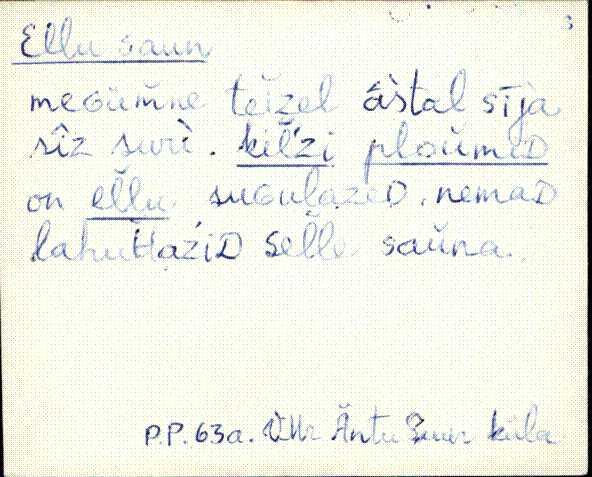 3
Ellu saun
meGŭm̆ne teĭzel ástal sīja
sîz suri. kiĺ'zi ploŭmiD
on el̆lu suGulazeD, nemaD
lahuttaziD sel̆le saŭna.
P.P. 63a. Äntu Suur küla